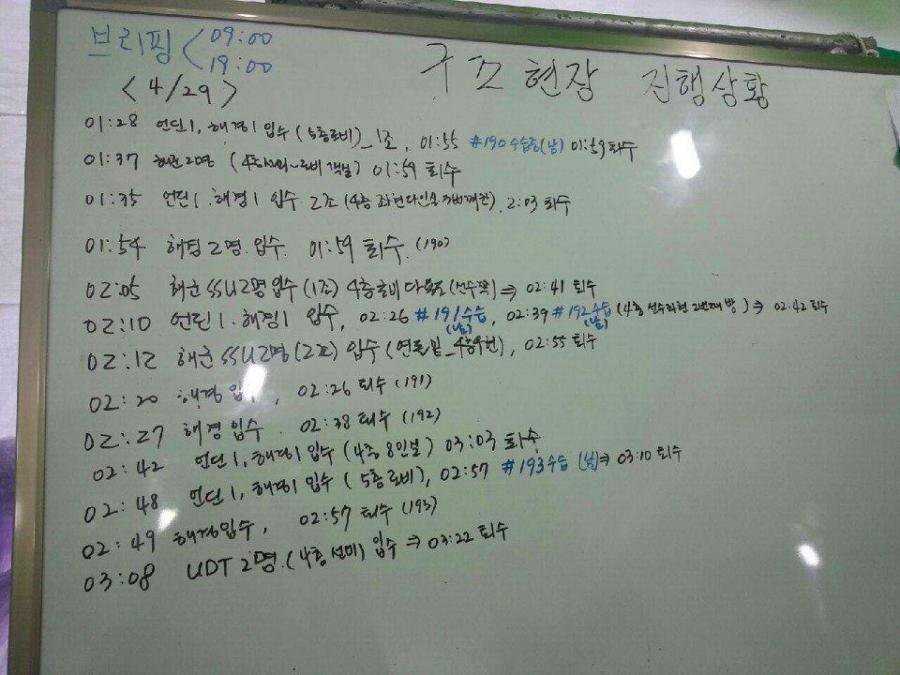 브리핑 < 09:00
19:00
구조현장 진행상황
<4/29>
01:28 언딘1, 해경1 입수 (5층로비)_1조, 01:55 #190수습(남) 01:59 퇴수
01:37 2명 (4층 로비 객실) 01:59 퇴수
01:35 언딘1. 해경1 입수 2조 (4층 좌현다인실 ). 2:03 퇴수
01:54 해경 2명 입수. 01:59 퇴수. (190)
02:05 해군 SSU2명입수 (1조) 4층로비 (선수쪽) ⇒ 02:41 퇴수
02:10 언딘1. 해경1 입수, 02:26 #191수습(남), 02:39 #192수습(남) (4층 선수좌현 2번째 방) ⇒ 02:42 퇴수
02:12 해군 SSU2명 (2조) 입수 ( ), 02:55 퇴수
02:20 해경 입수, 02:26 퇴수 (191)
02:27 해경입수. 02:38 퇴수 (192)
02:42 언딘1, 해경1 입수 (4층 8인실) 03:03 퇴수
02:48 언딘1, 해경1 입수 (5층로비), 02:57 #193수습 (남)⇒ 03:10 퇴수
02:49 해경입수, 02:57 퇴수 (193)
03:08 UDT 2명. (4층 선미) 입수 ⇒ 03:22 퇴수